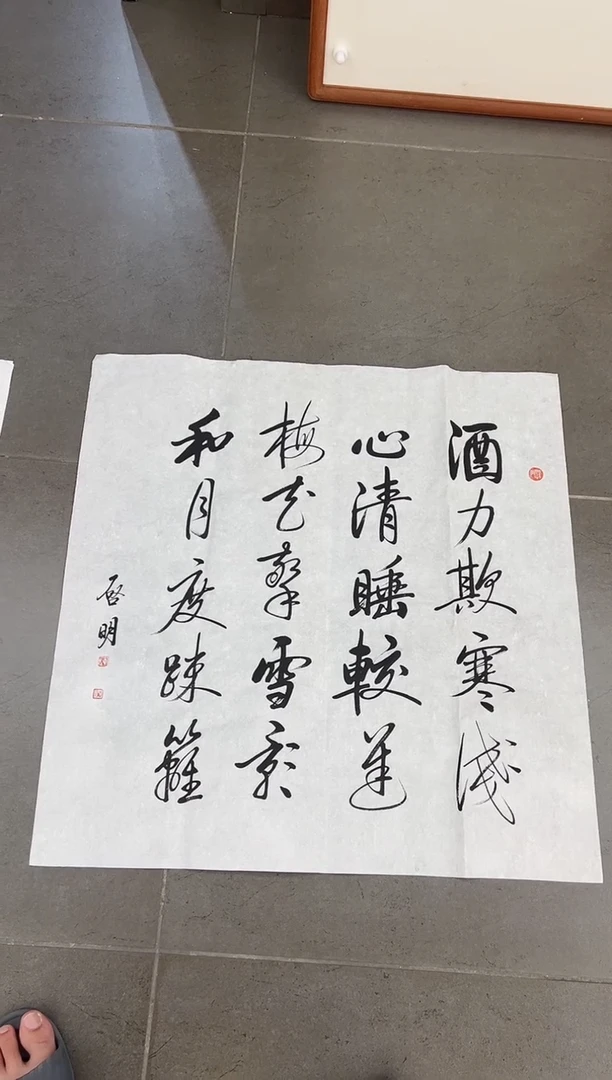 酒力欺寒淺
心清睡較遲
梅花擎雪影
和月度踈籬
啓明